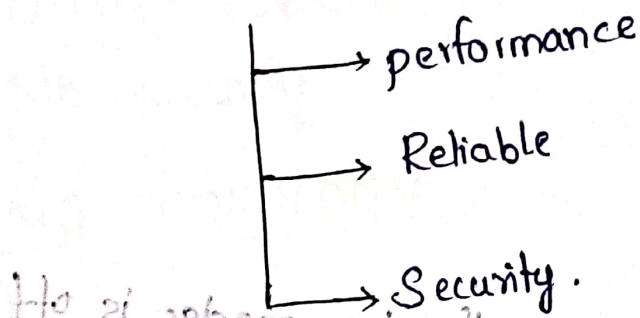 performance
Reliable
Security.